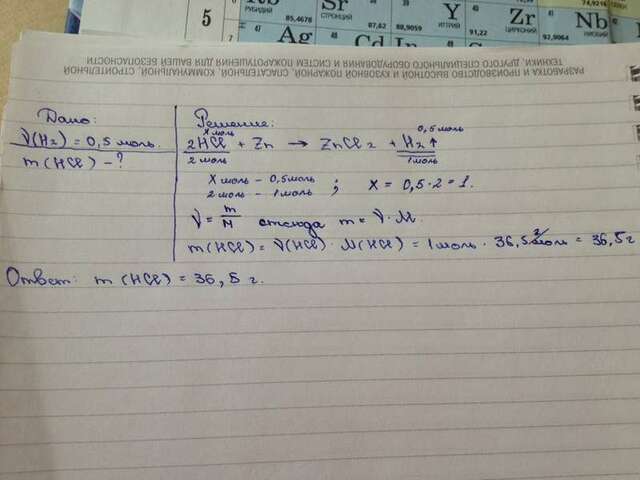 5
Rb
РУБИДИЙ
85,4678
Sr
СТРОНЦИЙ
87,62
88,9059
Y
ИТТРИЙ
91,22
Zr
ЦИРКОНИЙ
92,9064
Nb
НИОБИЙ
74,9216
47
Ag
Cd
In
РАЗРАБОТКА И ПРОИЗВОДСТВО ВАХТОВОЙ И КУЗОВНОЙ ПОЖАРНОЙ, СПАСАТЕЛЬНОЙ, КОММУНАЛЬНОЙ, СТРОИТЕЛЬНОЙ
ТЕХНИКИ, ДРУГОГО СПЕЦИАЛЬНОГО ОБОРУДОВАНИЯ И СИСТЕМ ПОЖАРОТУШЕНИЯ ДЛЯ ВАШЕЙ БЕЗОПАСНОСТИ
Дано:
ν(H₂) = 0,5 моль.
m(HCl) - ?
Решение:
x моль 0,5 моль
2HCl + Zn → ZnCl₂ + H₂↑
2 моль 1 моль
x моль - 0,5 моль ; x = 0,5 · 2 = 1.
2 моль - 1 моль
ν = m/M отсюда m = ν · M.
m(HCl) = ν(HCl) · M(HCl) = 1 моль · 36,5 г/моль = 36,5 г
Ответ: m(HCl) = 36,5 г.